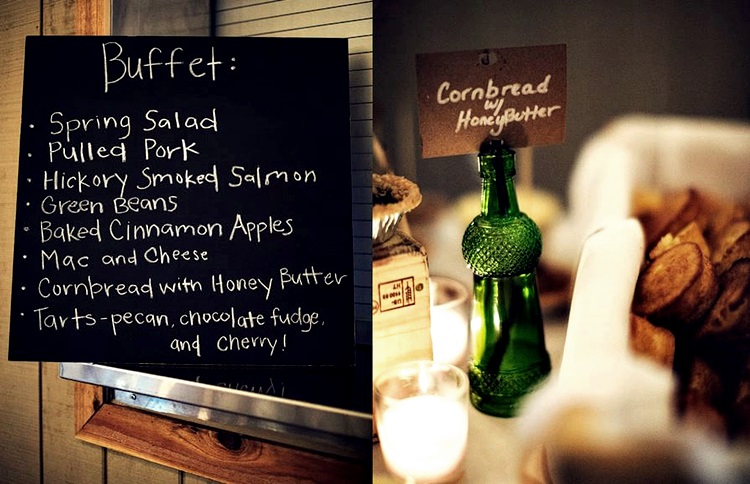 Buffet:
· Spring Salad
· Pulled Pork
· Hickory Smoked Salmon
· Green Beans
· Baked Cinnamon Apples
· Mac and Cheese
· Cornbread with Honey Butter
· Tarts - pecan, chocolate fudge,
and cherry!
Cornbread
w/
Honey Butter